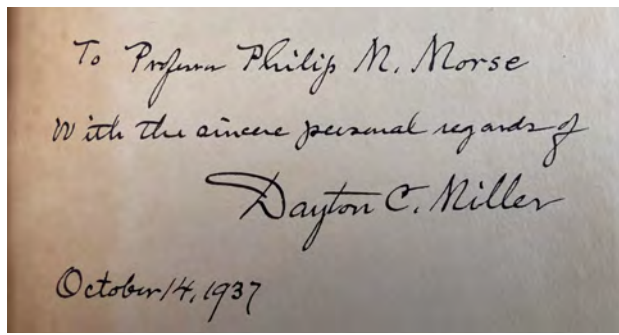 To Professor Philip M. Morse
With the sincere personal regards of
Dayton C. Miller
October 14, 1937